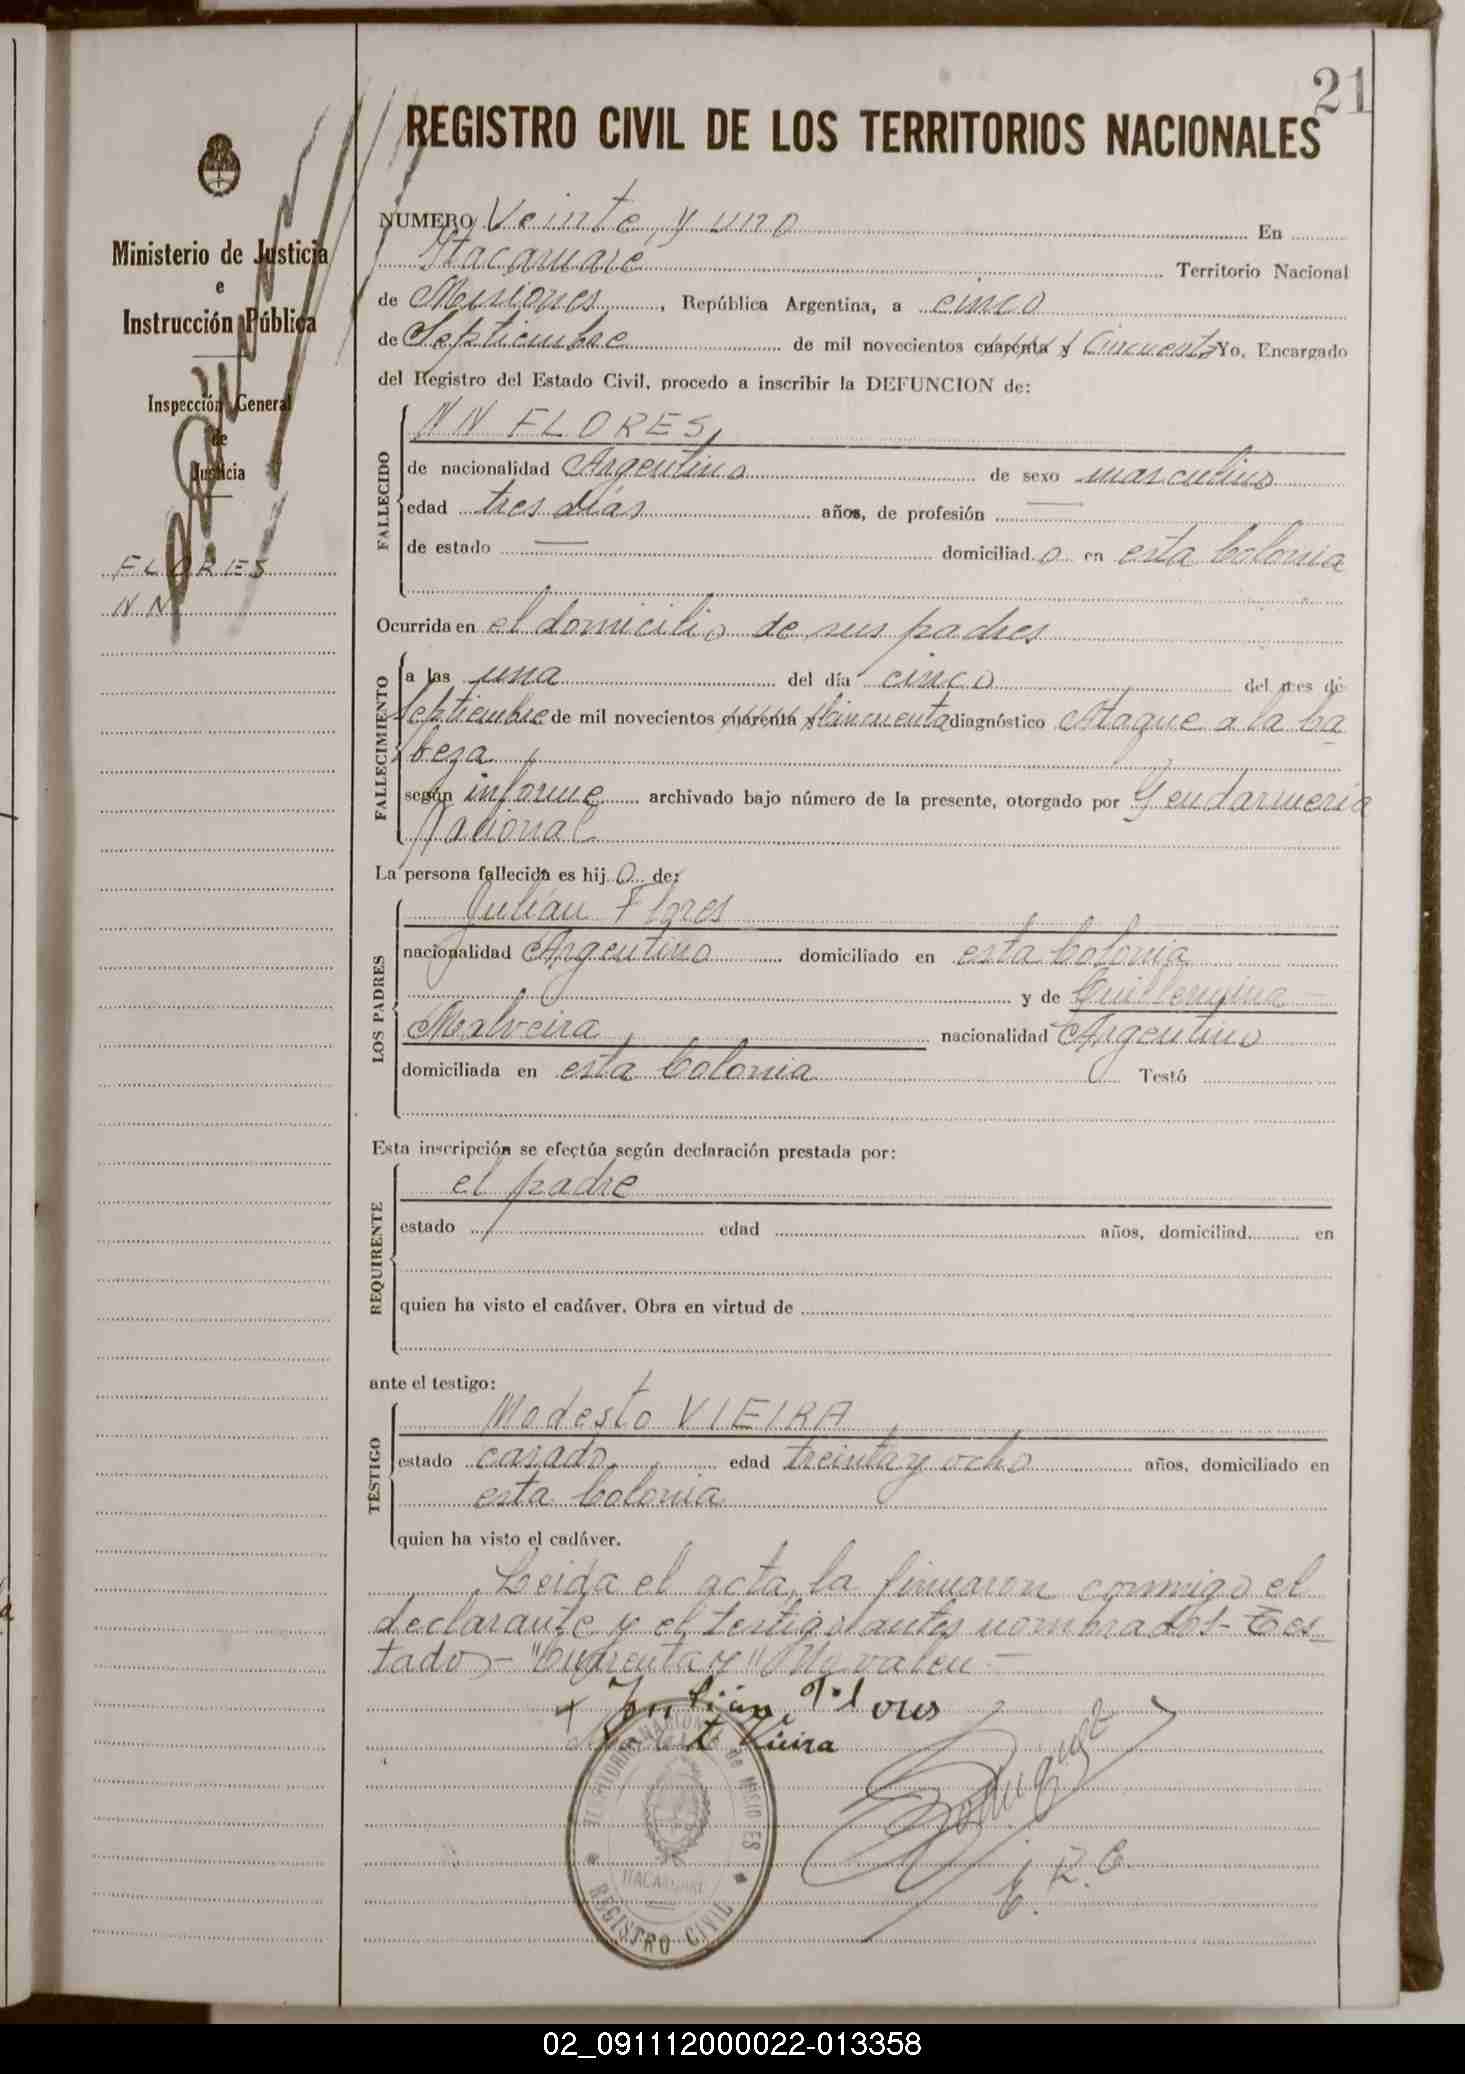 21
REGISTRO CIVIL DE LOS TERRITORIOS NACIONALES
Ministerio de Justicia
e
Instrucción Pública
Inspección General
de
Justicia
FLORES
NN
NUMERO Veinte y uno En
Itacaruaré Territorio Nacional
de Misiones, República Argentina, a cinco
de Septiembre de mil novecientos cuarenta y Cincuenta Yo, Encargado
del Registro del Estado Civil, procedo a inscribir la DEFUNCION de:
FALLECIDO
NN FLORES
de nacionalidad Argentino de sexo masculino
edad tres días años, de profesión —
de estado — domiciliad o en esta Colonia
Ocurrida en el domicilio de sus padres
FALLECIMIENTO
a las una del día cinco del mes de
Septiembre de mil novecientos cuarenta y Cincuenta diagnóstico Ataque a la Ca-
beza
según informe archivado bajo número de la presente, otorgado por Gendarmeria
Nacional
La persona fallecida es hij o de:
LOS PADRES
Julián Flores
nacionalidad Argentino domiciliado en esta Colonia
y de Guillermina —
Malveira nacionalidad Argentino
domiciliada en esta Colonia Testó
Esta inscripción se efectúa según declaración prestada por:
REQUIRENTE
el padre
estado edad años, domiciliad en
quien ha visto el cadáver. Obra en virtud de
ante el testigo:
TESTIGO
Modesto VIEIRA
estado casado edad treinta y ocho años, domiciliado en
esta Colonia
quien ha visto el cadáver.
Leida el acta, la firmaron conmigo el
declarante y el testigo antes nombrados - Tes-
tado - "Cuarenta y" No valen -
+ Julián Flores
Vieira
TERRITORIO NACIONAL de MISIONES
ITACARUARE
REGISTRO CIVIL
E. R. C.
02_091112000022-013358